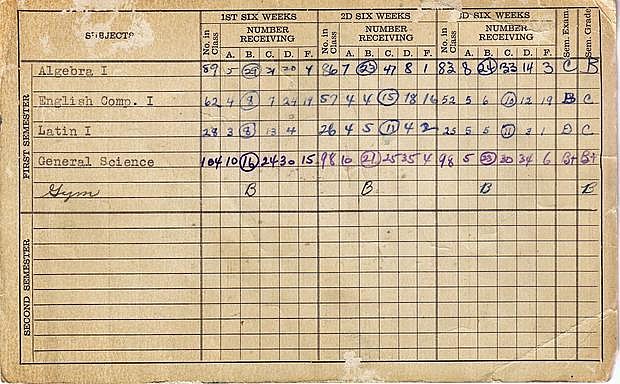 SUBJECTS 1ST SIX WEEKS 2D SIX WEEKS 3D SIX WEEKS Sem. Exam Sem. Grade
No. in Class NUMBER RECEIVING No. in Class NUMBER RECEIVING No. in Class NUMBER RECEIVING
A. B. C. D. F. A. B. C. D. F. A. B. C. D. F.
FIRST SEMESTER
Algebra I 89 5 29 20 4 86 7 23 47 8 1 82 8 24 33 14 3 C B
English Comp. I 62 4 8 7 24 19 57 4 4 15 18 16 52 5 6 10 12 19 B C
Latin I 28 3 8 13 4 26 4 5 11 4 2 25 5 5 11 3 1 D C
General Science 104 10 16 24 30 15 98 10 21 25 35 4 98 5 23 30 34 6 B+ B+
Gym B B B B
SECOND SEMESTER